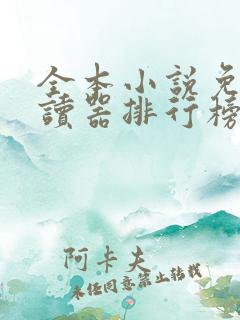 全本小說免
讀器排行榜
阿卡夫
未经同意禁止转载